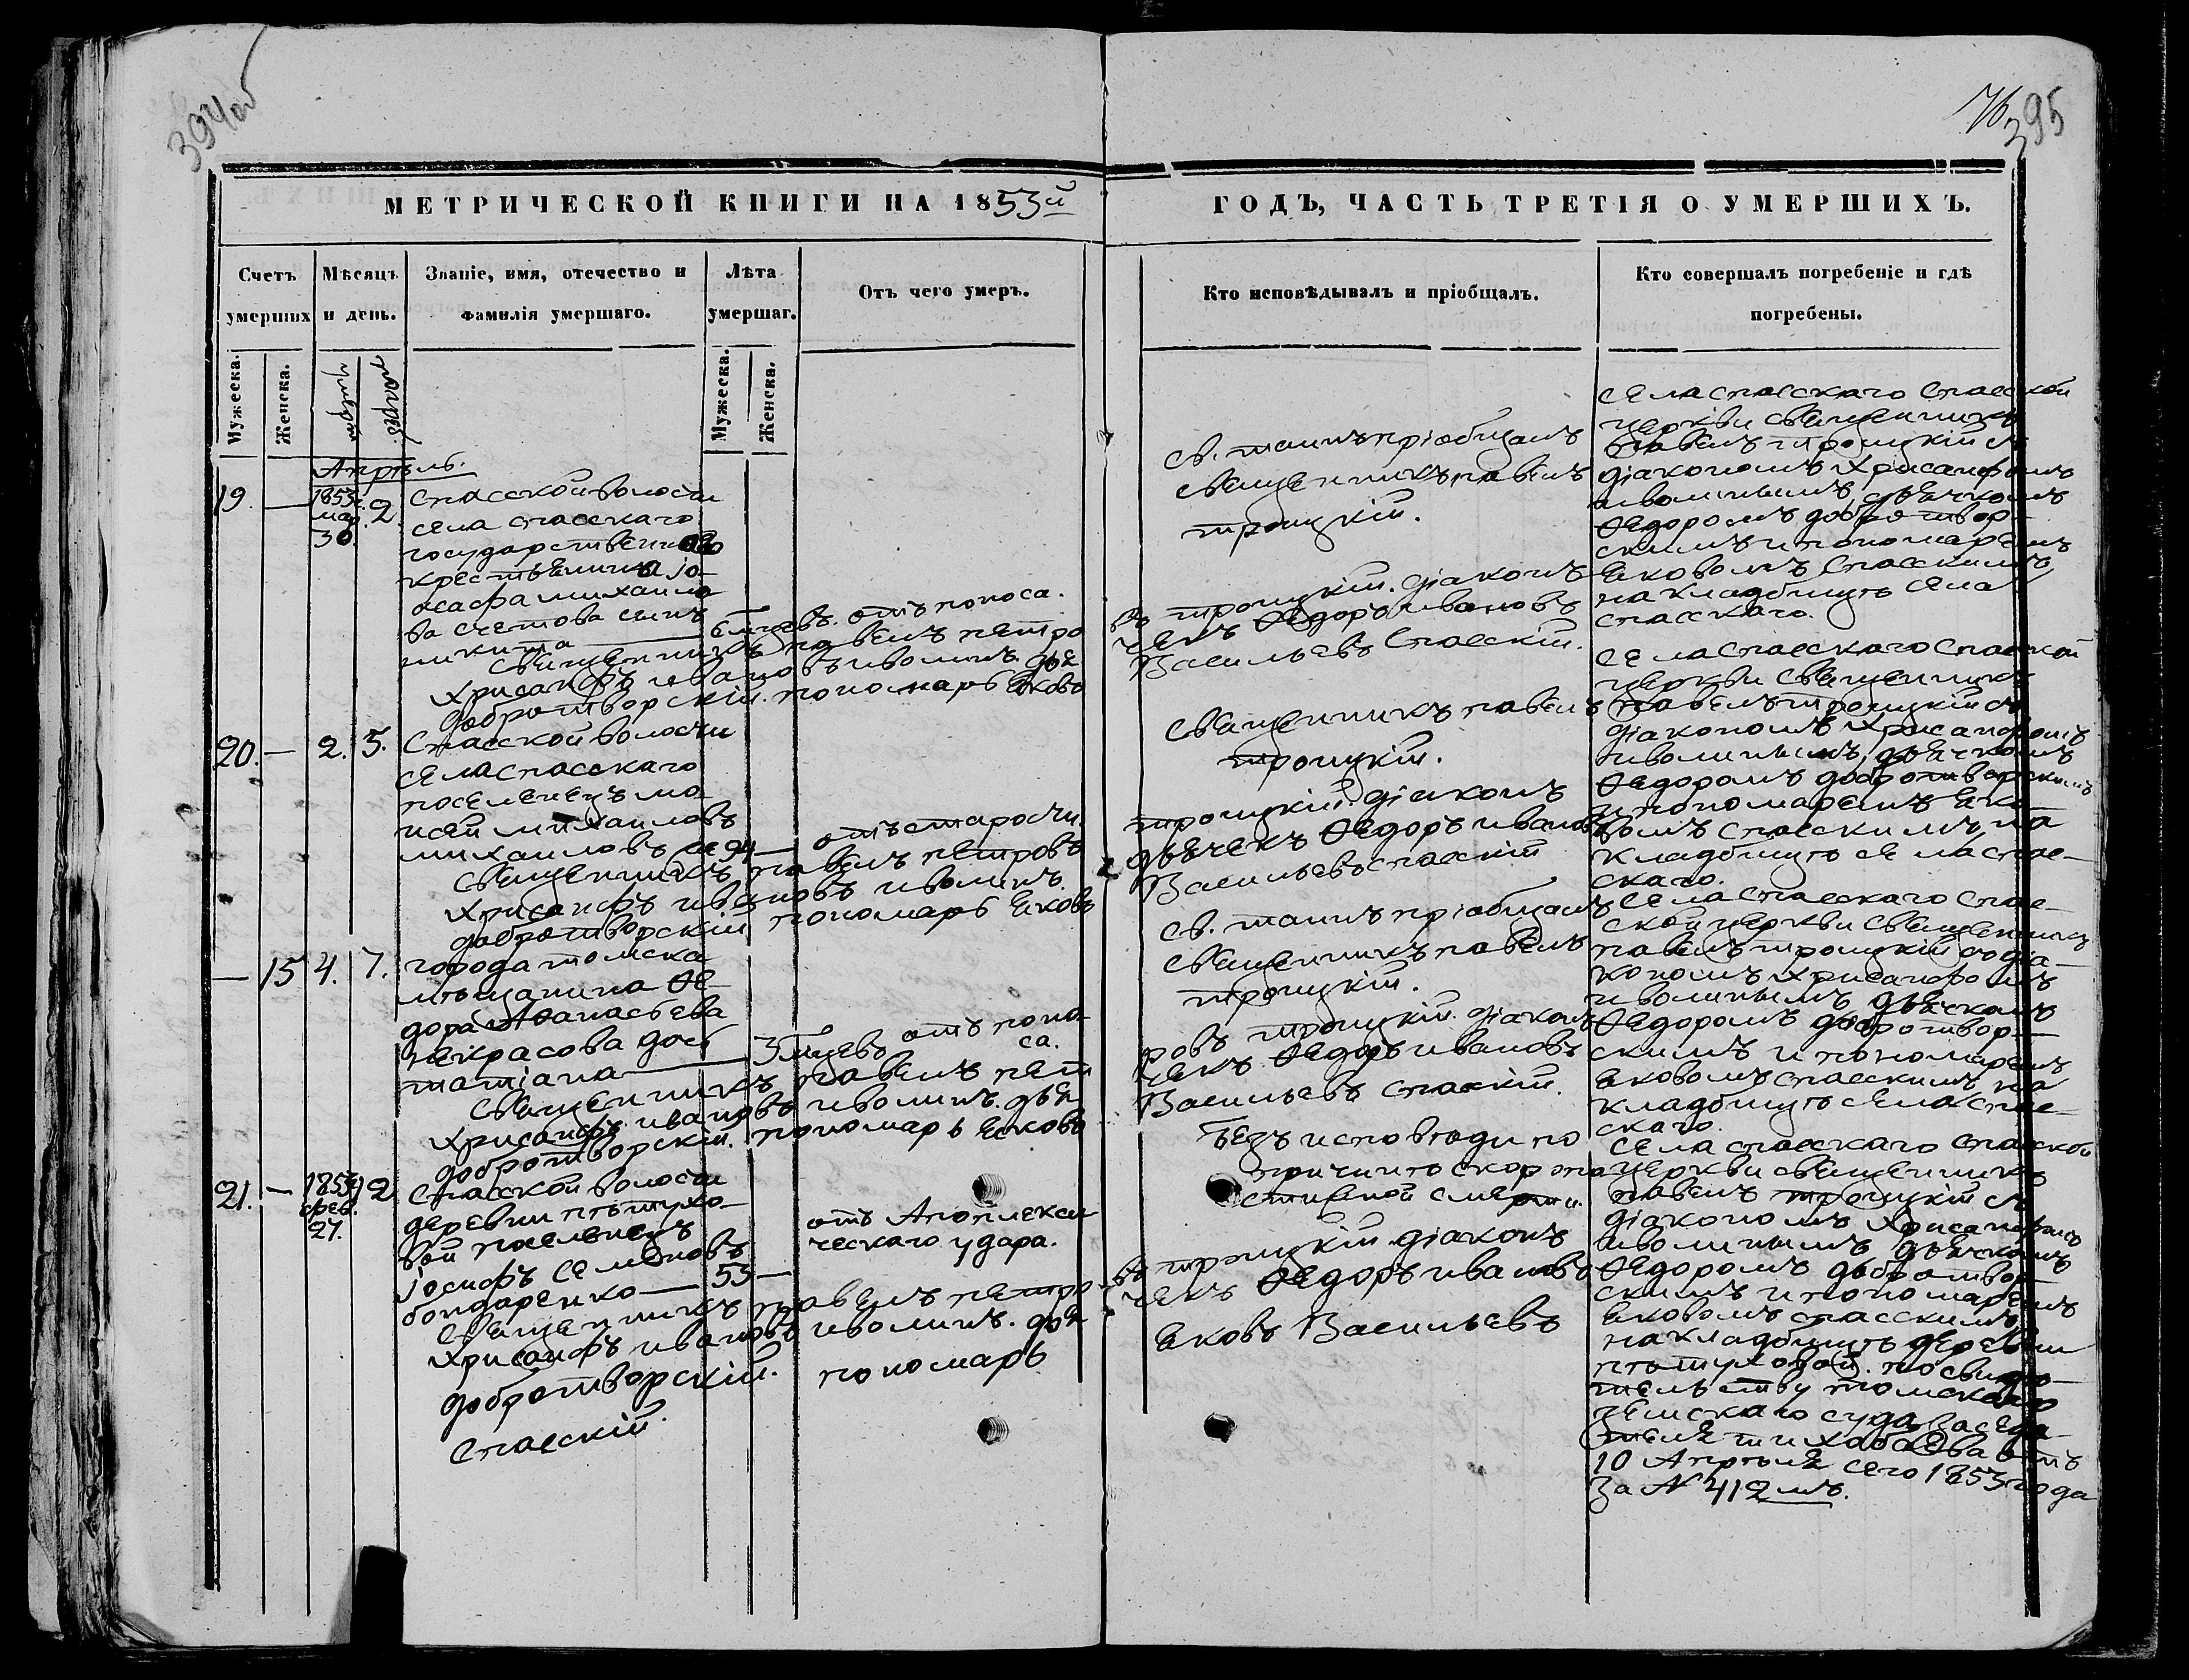 394об
76.
395
МЕТРИЧЕСКОЙ КНИГИ НА 1853й
ГОДЪ, ЧАСТЬ ТРЕТІЯ О УМЕРШИХЪ.
Счетъ умерших
Мѣсяцъ и день.
Званіе, имя, отечество и фамилія умершаго.
Лѣта умершаг.
Отъ чего умеръ.
Кто исповѣдывалъ и пріобщалъ.
Кто совершалъ погребеніе и гдѣ погребены.
Мужеска.
Женска.
Мужеска.
Женска.
Апрѣль.
19. — 1853. мар. 30. 2
Спасской волости
села спасскаго
государственнаго
крестьянина Іо-
асафа михаило
ва счетова сынъ
никита — 6 мцевъ. отъ поноса.
св. таинъ пріобщалъ
священникъ павелъ
троицкій.
села спасскаго спасской
церкви священникъ
павелъ троицкій съ
діакономъ Хрисанфомъ
иволинымъ, дьячкомъ
Ѳедоромъ добротвор-
скимъ и пономаремъ
Яковомъ спасскимъ,
на кладбищѣ села
спасскаго.
священникъ павелъ петро
въ троицкій. діаконъ
Хрисанфъ ивановъ иволинъ. дья
чекъ Ѳедоръ ивановъ
добротворскій. пономарь Яковъ
Васильевъ Спасскій.
20. — 2. 5.
Спасской волости
села спасскаго
поселенецъ мо
исей михаиловъ
михаиловъ 94 — отъ старости.
священникъ павелъ
троицкій.
села спасскаго спасской
церкви священникъ
павелъ троицкій съ
діакономъ Хрисанфомъ
иволинымъ, дьячкомъ
Ѳедоромъ добротворскимъ
и пономаремъ Яко
вомъ спасскимъ, на
кладбищѣ села спас-
скаго.
священникъ павелъ петровъ
троицкій. діаконъ
Хрисанфъ ивановъ иволинъ.
дьячекъ Ѳедоръ ивановъ
добротворскій пономарь Яковъ
Васильевъ спасскій
— 15 4. 7.
города томска
мѣщанина Ѳе-
дора Аѳанасьева
некрасова дочь
татіана — 3 мцевъ отъ поно-
са.
св. таинъ пріобщалъ
священникъ павелъ
троицкій.
села спасскаго спас-
ской церкви священникъ
павелъ троицкій съ діа-
кономъ Хрисанфомъ
иволинымъ, дьячкомъ
Ѳедоромъ добротвор-
скимъ и пономаремъ
Яковомъ спасскимъ, на
кладбищѣ села спас-
скаго.
священникъ павелъ пет
ровъ троицкій. діаконъ
Хрисанфъ ивановъ иволинъ. дья
чекъ Ѳедоръ ивановъ
добротворскій. пономарь Яковъ
Васильевъ спасскій.
21. — 1853 фев. 27. 12
Спасской волости
деревни пѣтухо-
вой поселенецъ
Іосифъ Семеновъ
бондаренко — 53 —
отъ Апоплекси
ческаго удара.
Безъ исповѣди по
причинѣ скоропо
стижной смерти.
села спасскаго спасской
церкви священникъ
павелъ троицкій съ
діакономъ Хрисанфомъ
иволинымъ, дьячкомъ
Ѳедоромъ добротвор-
скимъ и пономаремъ
Яковомъ спасскимъ,
на кладбищѣ деревни
пѣтуховой. по свидѣ-
тельству томскаго
земскаго суда Засѣда-
теля отъ
10 Апрѣля сего 1853 года
За № 412 мъ.
священникъ павелъ петро-
въ троицкій. діаконъ
Хрисанфъ ивановъ иволинъ. дья
чекъ Ѳедоръ ивановъ
добротворскій. пономарь
Яковъ Васильевъ
спасскій.